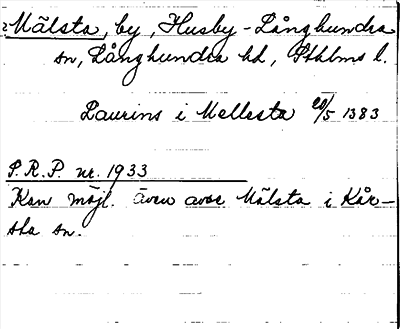 Mälsta, by, Husby-Långhundra
sn, Långhundra hd, Sthlms l.
Laurins i Mellesta 20/5 1383
S.R.P. nr. 1933
Kan möjl. även avse Mälsta i Kår-
sta sn.